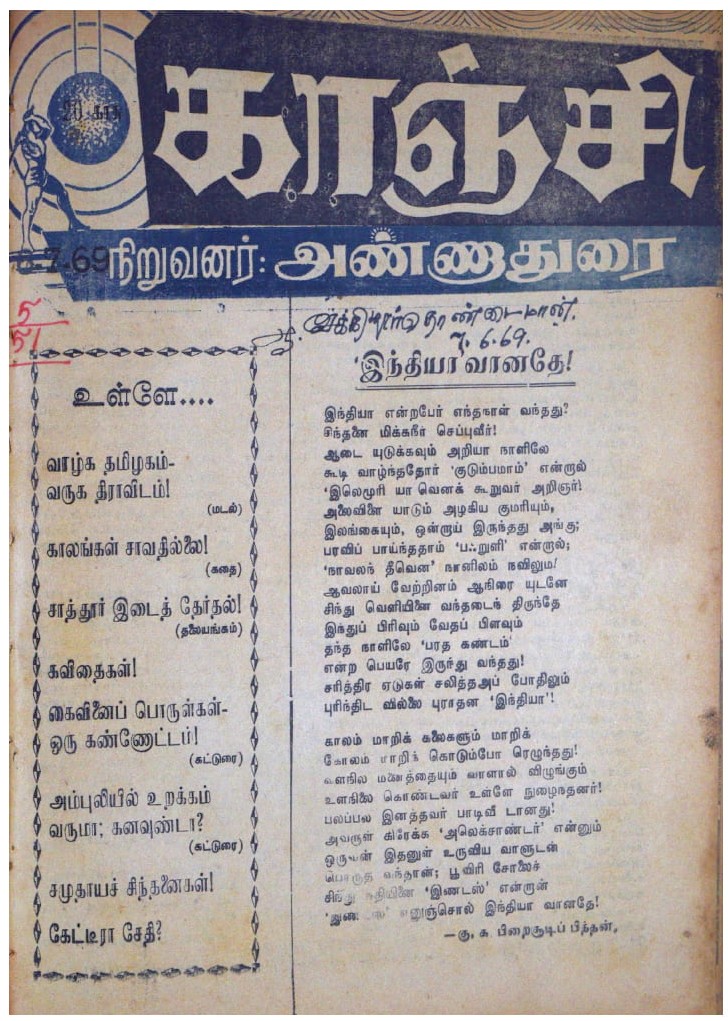 20 காசு
காஞ்சி
6-7-69 நிறுவனர்: அண்ணாதுரை
5
51
தொண்டைமான்.
7. 6.69.
உள்ளே....
வாழ்க தமிழகம்-
வருக திராவிடம்!
(மடல்)
காலங்கள் சாவதில்லை!
(கதை)
சாத்தூர் இடைத் தேர்தல்!
(தலையங்கம்)
கவிதைகள்!
கைவினைப் பொருள்கள்-
ஒரு கண்ணோட்டம்!
(கட்டுரை)
அம்புலியில் உறக்கம்
வருமா; கனவுண்டா?
(கட்டுரை)
சமுதாயச் சிந்தனைகள்!
கேட்டீரா சேதி?
'இந்தியா'வானதே!
இந்தியா என்றபேர் எந்தநாள் வந்தது?
சிந்தனை மிக்கநீர் செப்புவீர்!
ஆடை யுடுக்கவும் அறியா நாளிலே
கூடி வாழ்ந்ததோர் 'குடும்பமாம்' என்றால்
'இலெமூரி யா'வெனக் கூறுவர் அறிஞர்!
அலைவிளை யாடும் அழகிய குமரியும்,
இலங்கையும், ஒன்றாய் இருந்தது அங்கு;
பரவிப் பாய்ந்ததாம் 'பஃறுளி' என்றால்;
'நாவலந் தீவென' நானிலம் நவிலும்!
ஆவலாய் வேற்றினம் ஆநிரை யுடனே
சிந்து வெளியினை வந்தடைந் திருந்தே
இந்துப் பிரிவும் வேதப் பிளவும்
தந்த நாளிலே 'பரத கண்டம்'
என்ற பெயரே இருந்து வந்தது!
சரித்திர ஏடுகள் சலித்தஅப் போதிலும்
புரிந்திட வில்லை புராதன 'இந்தியா'!
காலம் மாறிக் கலைகளும் மாறிக்
கோலம் மாறிக் கொடும்போ ரெழுந்தது!
வளநில மனைத்தையும் வாளால் விழுங்கும்
உளநிலை கொண்டவர் உள்ளே நுழைந்தனர்!
பலப்பல இனத்தவர் பாடிவீ டானது!
அவருள் கிரேக்க 'அலெக்சாண்டர்' என்னும்
ஒருவன் இதனுள் உருவிய வாளுடன்
பொருத வந்தான்; பூவிரி சோலைச்
சிந்து நதியினை 'இண்டஸ்' என்றான்
'இண்டஸ்' எனுஞ்சொல் இந்தியா வானதே!
—கு. க. பிறைசூடிப் பித்தன்.